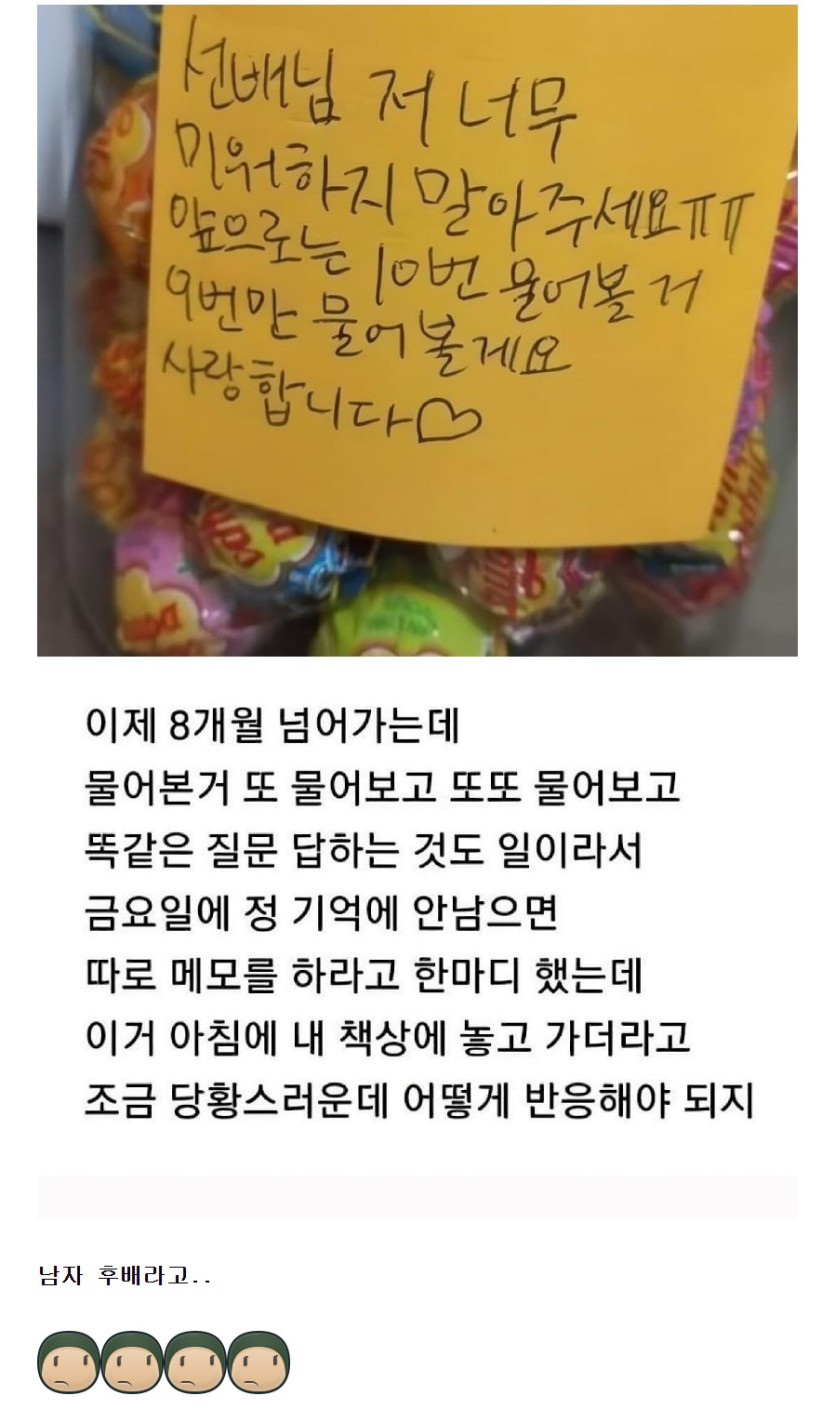 선배님 저 너무
미워하지 말아주세요ㅠㅠ
앞으로는 10번 물어볼 거
9번만 물어볼게요
사랑합니다♡
이제 8개월 넘어가는데
물어본거 또 물어보고 또또 물어보고
똑같은 질문 답하는 것도 일이라서
금요일에 정 기억에 안남으면
따로 메모를 하라고 한마디 했는데
이거 아침에 내 책상에 놓고 가더라고
조금 당황스러운데 어떻게 반응해야 되지
남자 후배라고..